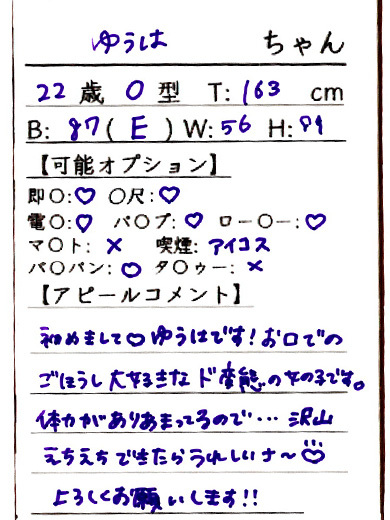 ゆうは ちゃん
22歳 O型 T:163cm
B:87(E)W:56 H:89
【可能オプション】
即〇:♡ 〇尺:♡
電〇:♡ パ〇プ:♡ ロー〇ー:♡
マ〇ト:× 喫煙:アイコス
パ〇パン:♡ タ〇ゥー:×
【アピールコメント】
初めまして♡ゆうはです!お口での
ごほうし大好きなド変態の女の子です。
体力がありあまってるので… 沢山
えちえちできたらうれしいナ〜♡
よろしくお願いします!!